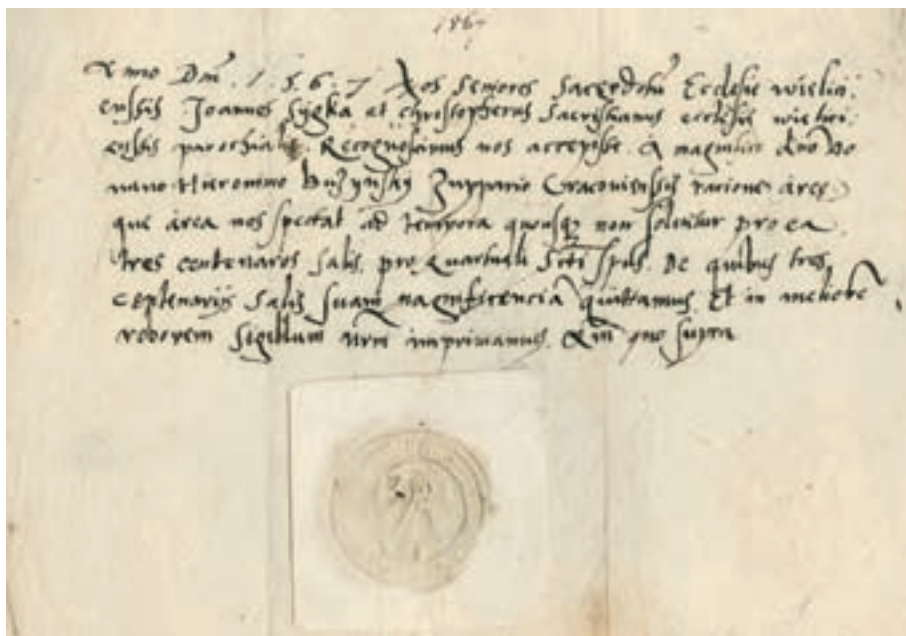 1567
Anno Dni. 1.5.6.7 Nos seniores sacerdotu Ecclesie wielici,
ensis Joannes Sygka et Christopherus sacristianus ecclesie wielici,
ensis parochialis. Recognoscimus nos accepisse. a magnifico dno Do
nano Hieronimo Buzynsky Zuppario Cracoviensis racione aree,
que area nos spectat ad tempora quousq non solvitur pro ea.
tres centenaros salis. pro Quartuali Scti Spūs. De quibus tres
centenarijs salis suam magnificenciā quittamus. Et in meliorē
roborem sigillum nrm imprimamus. quo supra